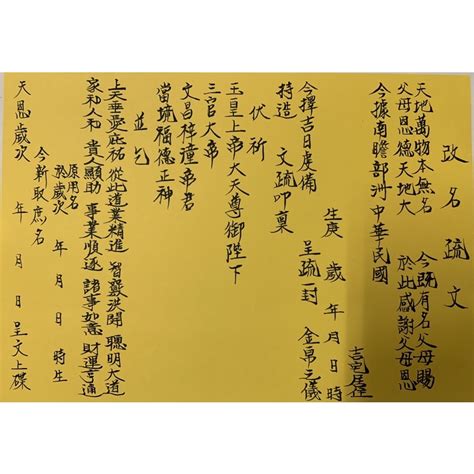 改名疏文
天地萬物本無名 今既有名父母賜
父母恩德天地大 於此感謝父母恩
今據南瞻部洲中華民國
吉宅居住
生庚 歲 年 月 日 時
今擇吉日虔備 呈疏一封 金帛之儀
持造 文疏叩稟
伏祈
玉皇上帝大天尊御陛下
三官大帝
文昌梓潼帝君
當境福德正神
並乞
上天垂愛庇祐 從此道業精進 智慧洪開 聰明大道
家和人和 貴人顯助 事業順遂 諸事如意 財運亨通
原用名
於歲次 年 月 日 時生
今新取庶名
天恩歲次 年 月 日 呈文上礫